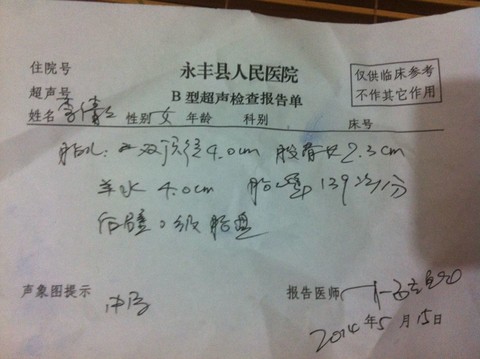 住院号
永丰县人民医院
仅供临床参考
不作其它作用
超声号
B型超声检查报告单
姓名 李倩 性别 女 年龄 科别 床号
胎儿: 双顶径4.0cm 股骨长2.3cm
羊水 4.0cm 胎心率 139次/分
后壁 0级胎盘
声象图提示
中孕
报告医师
2014年5月15日